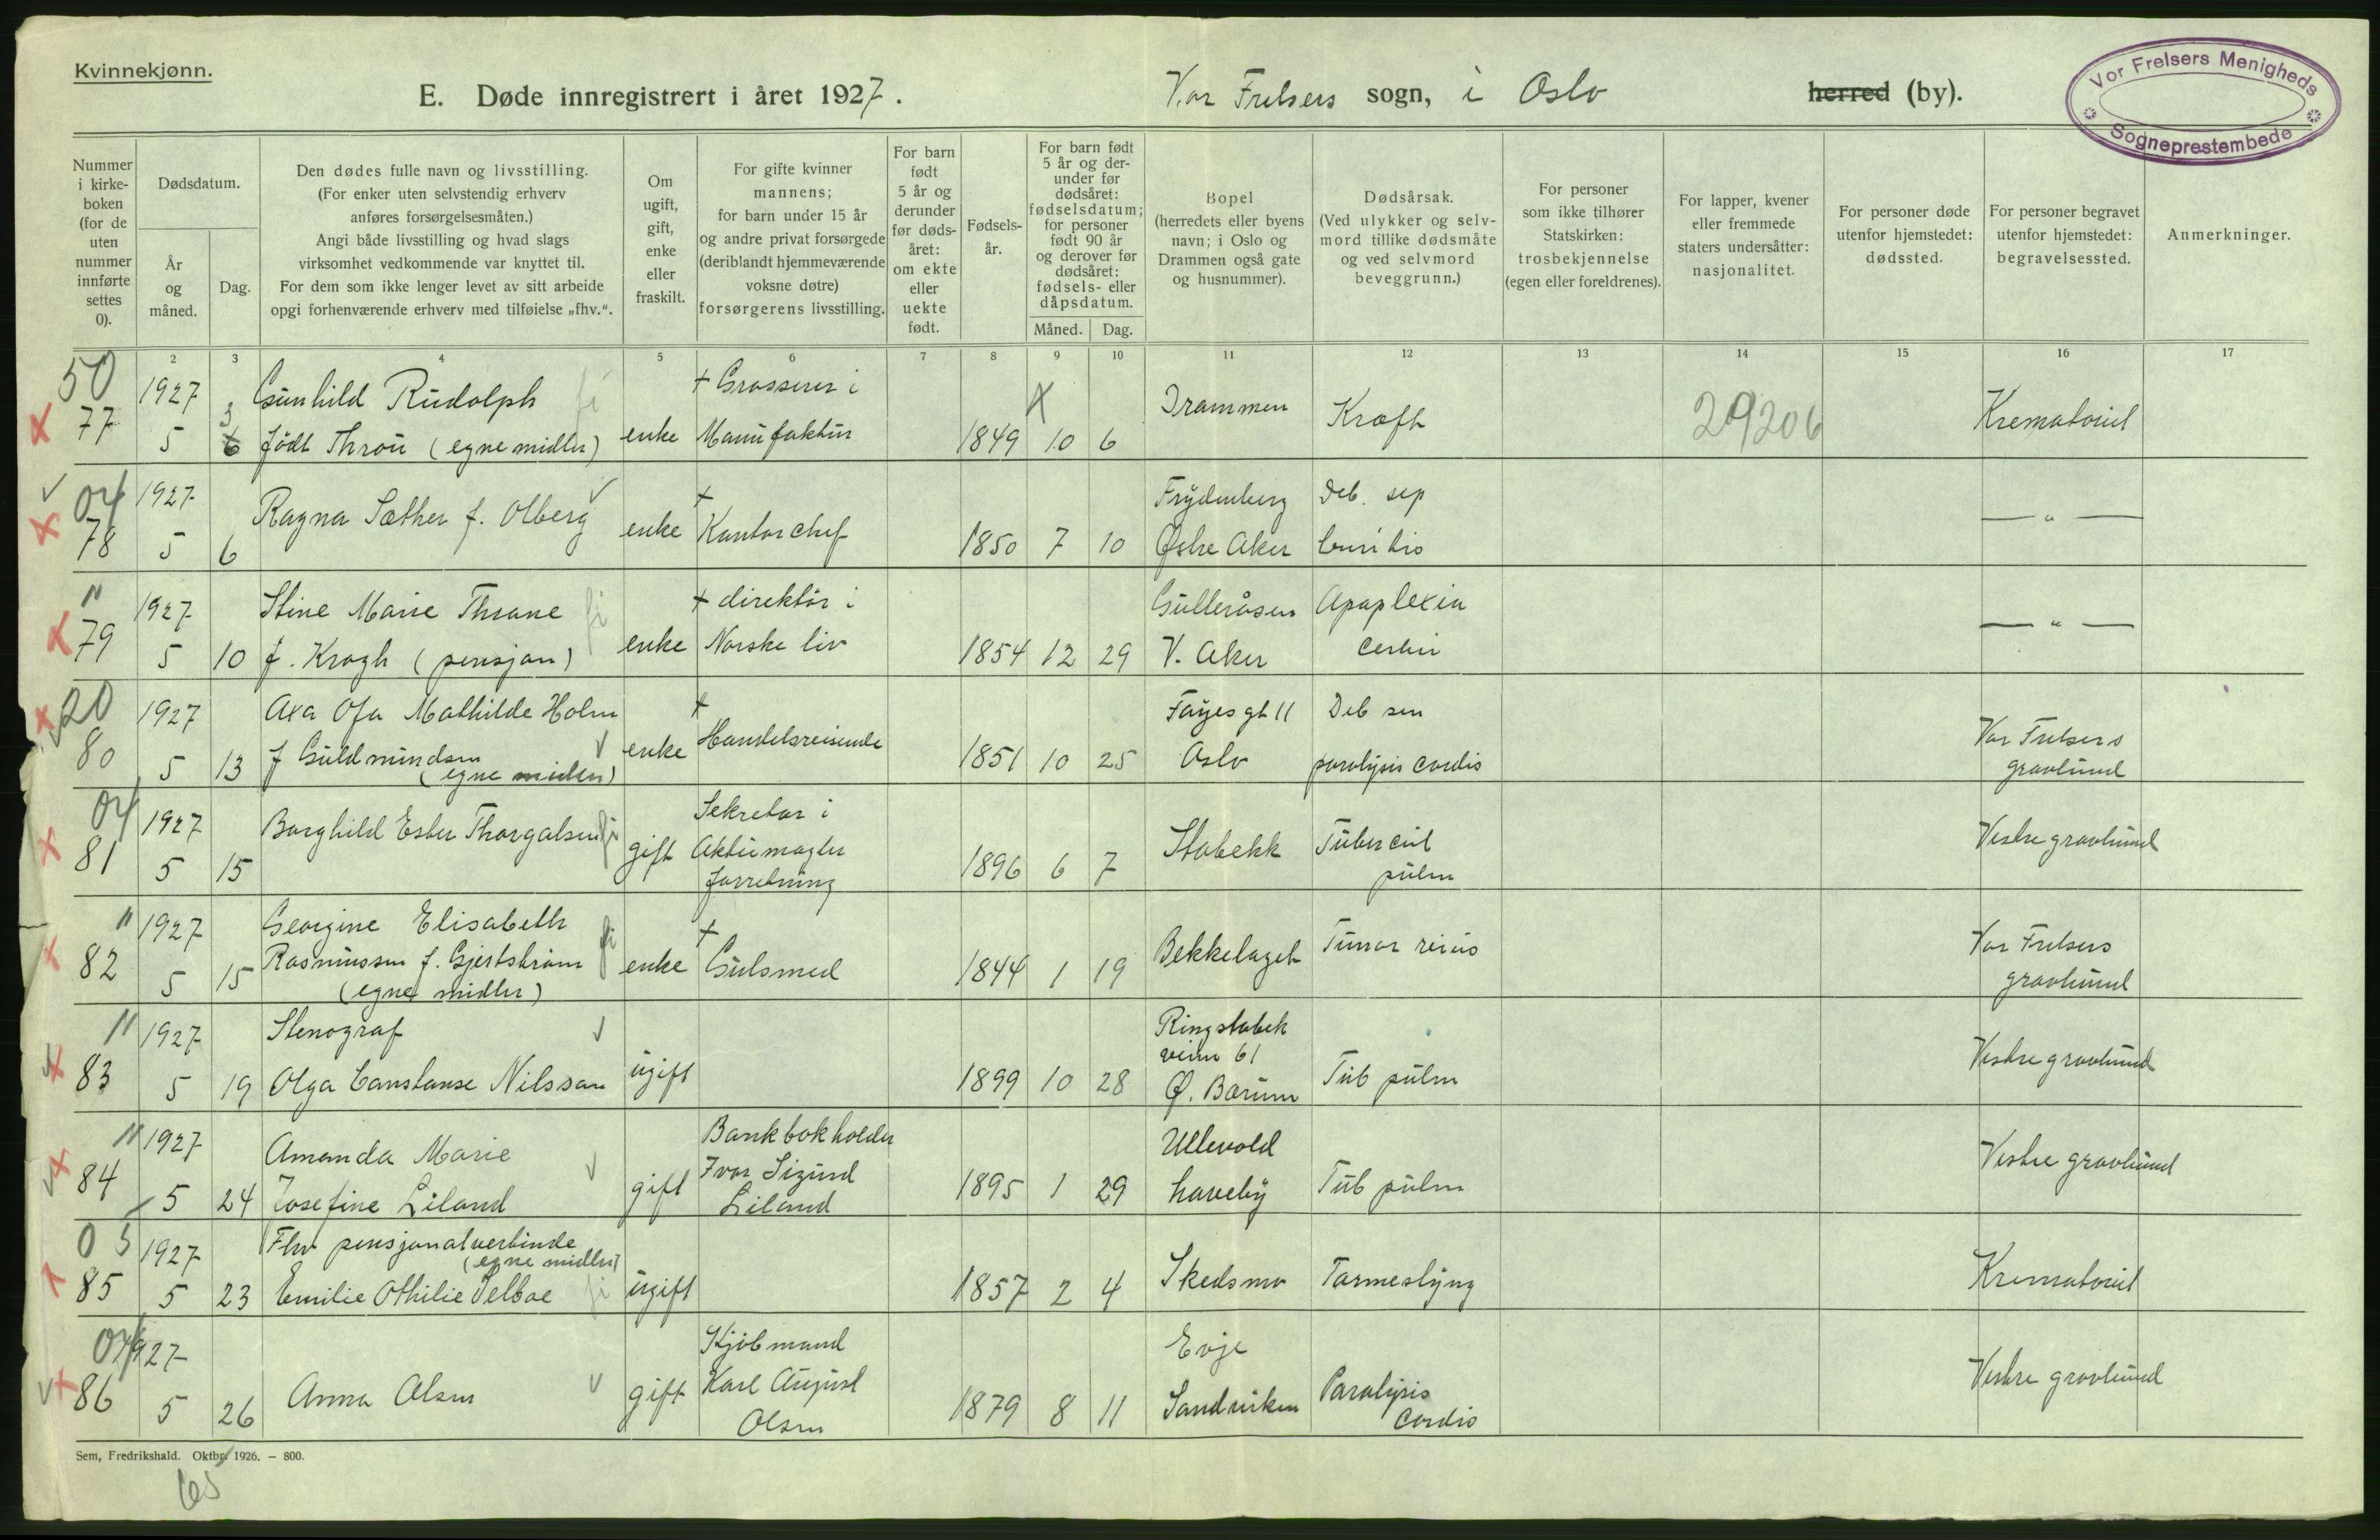 Kvinnekjønn.
E. Døde innregistrert i året 1927. Vor Frelsers sogn, i Oslo herred (by).
Vor Frelsers Menigheds Sogneprestembede
Nummer i kirkeboken (for de uten nummer innførte settes 0).
Dødsdatum.
År og måned.
Dag.
Den dødes fulle navn og livsstilling.
(For enker uten selvstendig erhverv
anføres forsørgelsesmåten.)
Angi både livsstilling og hvad slags
virksomhet vedkommende var knyttet til.
For dem som ikke lenger levet av sitt arbeide
opgi forhenværende erhverv med tilføielse „fhv.“.
Om ugift, gift, enke eller fraskilt.
For gifte kvinner
mannens;
for barn under 15 år
og andre privat forsørgede
(deriblandt hjemmeværende
voksne døtre)
forsørgerens livsstilling.
For barn født 5 år og derunder før dødsåret: om ekte eller uekte født.
Fødselsår.
For barn født 5 år og derunder før dødsåret: fødselsdatum; for personer født 90 år og derover før dødsåret: fødsels- eller dåpsdatum.
Måned. Dag.
Bopel
(herredets eller byens
navn; i Oslo og
Drammen også gate
og husnummer).
Dødsårsak.
(Ved ulykker og selvmord tillike dødsmåte
og ved selvmord
beveggrunn.)
For personer
som ikke tilhører
Statskirken:
trosbekjennelse
(egen eller foreldrenes).
For lapper, kvener
eller fremmede
staters undersåtter:
nasjonalitet.
For personer døde
utenfor hjemstedet:
dødssted.
For personer begravet
utenfor hjemstedet:
begravelsessted.
Anmerkninger.
2 3 4 5 6 7 8 9 10 11 12 13 14 15 16 17
50 1927 3 Gunhild Rudolph + Grosserer i Drammen
77 5 6 født Throu (egne midler) enke Manufaktur 1849 10 6 Kræft 29206 Krematoriet
04 1927 Ragna Sæther f. Olberg + Frydenberg Deb. sep
78 5 6 enke Kontorchef 1850 7 10 Østre Aker — " —
" 1927 Stine Marie Thrane + direktør i Gulleråsen Apoplexia
79 5 10 f. Krogh (pensjon) enke Norske liv 1854 12 29 V. Aker cerebri — " —
20 1927 Axa Ofa Mathilde Holm + Fayes gt 11 Deb sen
80 5 13 f Guldmundsen (egne midler) enke Handelsreisende 1851 10 25 Oslo paralysis cordis Vor Frelsers gravlund
04 1927 Borghild Ester Thorgalsen Sekretær i
81 5 15 gift Aktiemægler forretning 1896 6 7 Stabekk Tubercul pulm Vestre gravlund
" 1927 Georgine Elisabeth +
82 5 15 Rasmussen f. Gjertstrøm (egne midler) enke Gulsmed 1844 1 19 Bekkelaget Tumor Vor Frelsers gravlund
" 1927 Stenograf Ringstabek veien 61
83 5 19 Olga Constanse Nilsson ugift 1899 10 28 Ø. Bærum Tub pulm Vestre gravlund
" 1927 Amanda Marie Bankbokholder Ullevold
84 5 24 Josefine Liland gift Ivar Sigurd Liland 1895 1 29 haveby Tub pulm Vestre gravlund
05 1927 Fhv pensjonatvertinde (egne midler)
85 5 23 Emilie Othilie Selboe ugift 1857 2 4 Skedsmo Tarmeslyng Krematoriet
04 1927 Kjøbmand Evje
86 5 26 Anna Olsen gift Karl August Olsen 1879 8 11 Sandviken Paralysis Cordis Vestre gravlund
Sem, Fredrikshald. Oktbr. 1926. — 800.
65